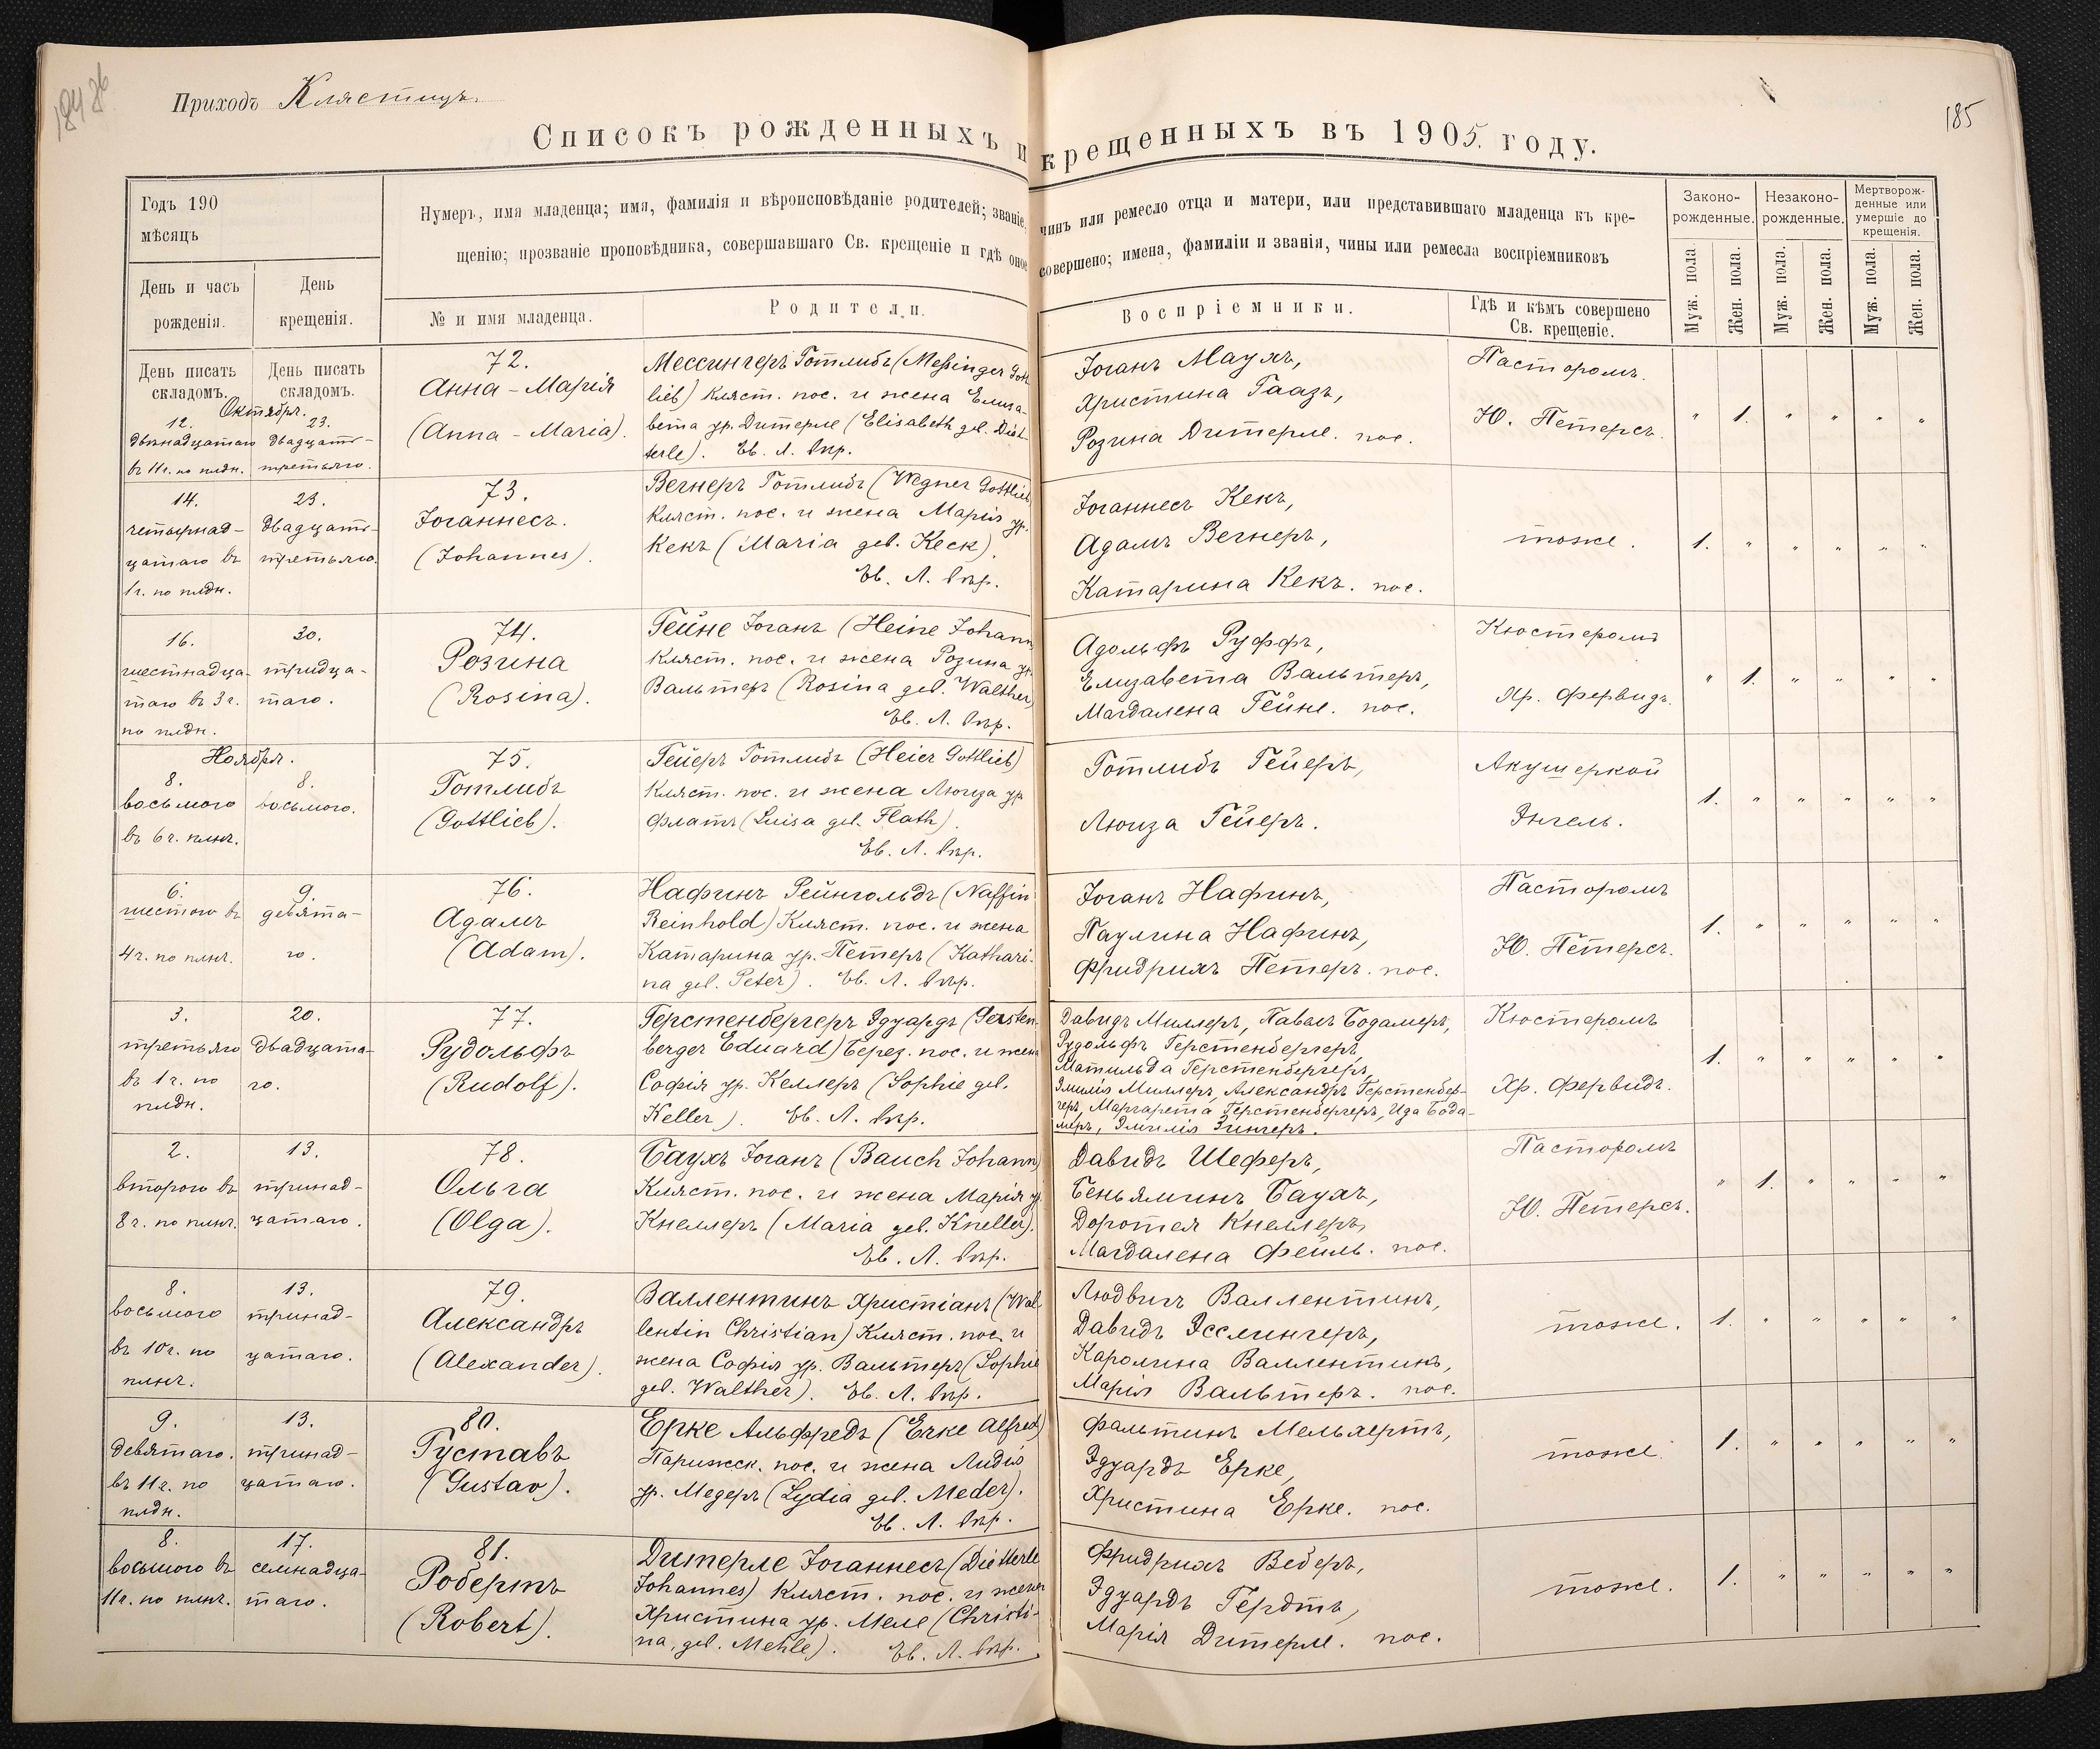 Приходъ Клястицъ.
185
Списокъ рожденныхъ и крещенныхъ въ 1905. году.
Годъ 190
мѣсяцъ
День и часъ
рожденія.
День
крещенія.
Нумеръ, имя младенца; имя, фамилія и вѣроисповѣданіе родителей; званіе, чинъ или ремесло отца и матери, или представившаго младенца къ кре-
щенію; прозваніе проповѣдника, совершавшаго Св. крещеніе и гдѣ оное совершено; имена, фамиліи и званія, чины или ремесла воспріемниковъ
№ и имя младенца.
Родители.
Воспріемники.
Гдѣ и кѣмъ совершено
Св. крещеніе.
Законо-
рожденные.
Незаконо-
рожденные.
Мертворож-
денные или
умершіе до
крещенія.
Муж. пола.
Жен. пола.
Муж. пола.
Жен. пола.
Муж. пола.
Жен. пола.
День писать
складомъ.
День писать
складомъ.
Октября.
12.
двѣнадцатаго
въ 11 ч. по плдн.
23.
двадцать-
третьяго.
72.
Анна-Марія
(Anna-Maria).
Мессингеръ Готлибъ (Meßinger Gott
lieb) Кляст. пос. и жена Елиза-
бета ур. Дитерле (Elisabeth geb. Diet-
terle). Ев. Л. вѣр.
Іоганъ Маухъ,
Христина Гаазъ,
Розина Дитерле. пос.
Пасторомъ
Ю. Петерсъ.
" 1. " " " "
14.
четырнад-
цатаго въ
1 ч. по плдн.
23.
двадцать-
третьяго.
73.
Іоганнесъ.
(Johannes).
Вегнеръ Готлибъ (Wegner Gottlieb
Кляст. пос. и жена Марія ур.
Кекъ (Maria geb. Keck).
Ев. Л. вѣр.
Іоганнесъ Кекъ,
Адамъ Вегнеръ,
Катарина Кекъ. пос.
тоже.
1. " " " " "
16.
шестнадца-
таго въ 3 ч.
по плдн.
30.
тридца-
таго.
74.
Розина
(Rosina).
Гейне Іоганъ (Heine Johann
Кляст. пос. и жена Розина ур.
Вальтеръ (Rosina geb. Walther)
Ев. Л. вѣр.
Адольфъ Руффъ,
Елизавета Вальтеръ,
Магдалена Гейне. пос.
Кюстеромъ
Хр. Фервидъ.
" 1. " " " "
Ноября.
8.
восьмого
въ 6 ч. плнч.
8.
восьмого.
75.
Готлибъ
(Gottlieb).
Гейеръ Готлибъ (Heier Gottlieb)
Кляст. пос. и жена Люиза ур
Флатъ (Luisa geb. Flath).
Ев. Л. вѣр.
Готлибъ Гейеръ,
Люиза Гейеръ.
Акушеркой
Энгель.
1. " " " " "
6.
шестого въ
4 ч. по плнч.
9.
девята-
го.
76.
Адамъ
(Adam).
Нафинъ Рейнгольдъ (Naffin
Reinhold) Кляст. пос. и жена
Катарина ур. Петеръ (Kathari-
na geb. Peter). Ев. Л. вѣр.
Іоганъ Нафинъ,
Паулина Нафинъ,
Фридрихъ Петеръ. пос.
Пасторомъ
Ю. Петерсъ.
1. " " " " "
3.
третьяго
въ 1 ч. по
плдн.
20.
двадцата-
го.
77.
Рудольфъ
(Rudolf).
Герстенбергеръ Эдуардъ (Gersten-
berger Eduard) Берез. пос. и жена
Софія ур. Келлеръ (Sophie geb.
Keller). Ев. Л. вѣр.
Давидъ Миллеръ, Павелъ Бодамеръ,
Рудольфъ Герстенбергеръ,
Матильда Герстенбергеръ,
Эмилія Миллеръ, Александръ Герстенбер-
геръ, Маргарета Герстенбергеръ, Ида Бода-
меръ, Эмилія Зингеръ.
Кюстеромъ
Хр. Фервидъ.
1. " " " " "
2.
второго въ
8 ч. по плнч.
13.
тринад-
цатаго.
78.
Ольга
(Olga).
Баухъ Іоганъ (Bauch Johann)
Кляст. пос. и жена Марія ур.
Кнеллеръ (Maria geb. Kneller).
Ев. Л. вѣр.
Давидъ Шеферъ,
Беньяминъ Баухъ,
Доротея Кнеллеръ,
Магдалена Фейль. пос.
Пасторомъ
Ю. Петерсъ.
" 1. " " " "
8.
восьмого
въ 10 ч. по
плнч.
13.
тринад-
цатаго.
79.
Александръ
(Alexander).
Валлентинъ Христіанъ (Wal-
lentin Christian) Кляст. пос. и
жена Софія ур. Вальтеръ (Sophie
geb. Walther). Ев. Л. вѣр.
Людвигъ Валлентинъ,
Давидъ Эсслингеръ,
Каролина Валлентинъ,
Марія Вальтеръ. пос.
тоже.
1. " " " " "
9.
девятаго.
въ 11 ч. по
плдн.
13.
тринад-
цатаго.
80.
Густавъ
(Gustav).
Ерке Альфредъ (Erke Alfred)
Парижск. пос. и жена Лидія
ур. Медеръ (Lydia geb. Meder).
Ев. Л. вѣр.
Фальтинъ Мельхертъ,
Эдуардъ Ерке,
Христина Ерке. пос.
тоже.
1. " " " " "
8.
восьмого въ
11 ч. по плнч.
17.
семнадца-
таго.
81.
Робертъ
(Robert).
Дитерле Іоганнесъ (Dietterle
Johannes) Кляст. пос. и жена
Христина ур. Меле (Christi-
na, geb. Mehle). Ев. Л. вѣр.
Фридрихъ Веберъ,
Эдуардъ Гердтъ,
Марія Дитерле. пос.
тоже.
1. " " " " "